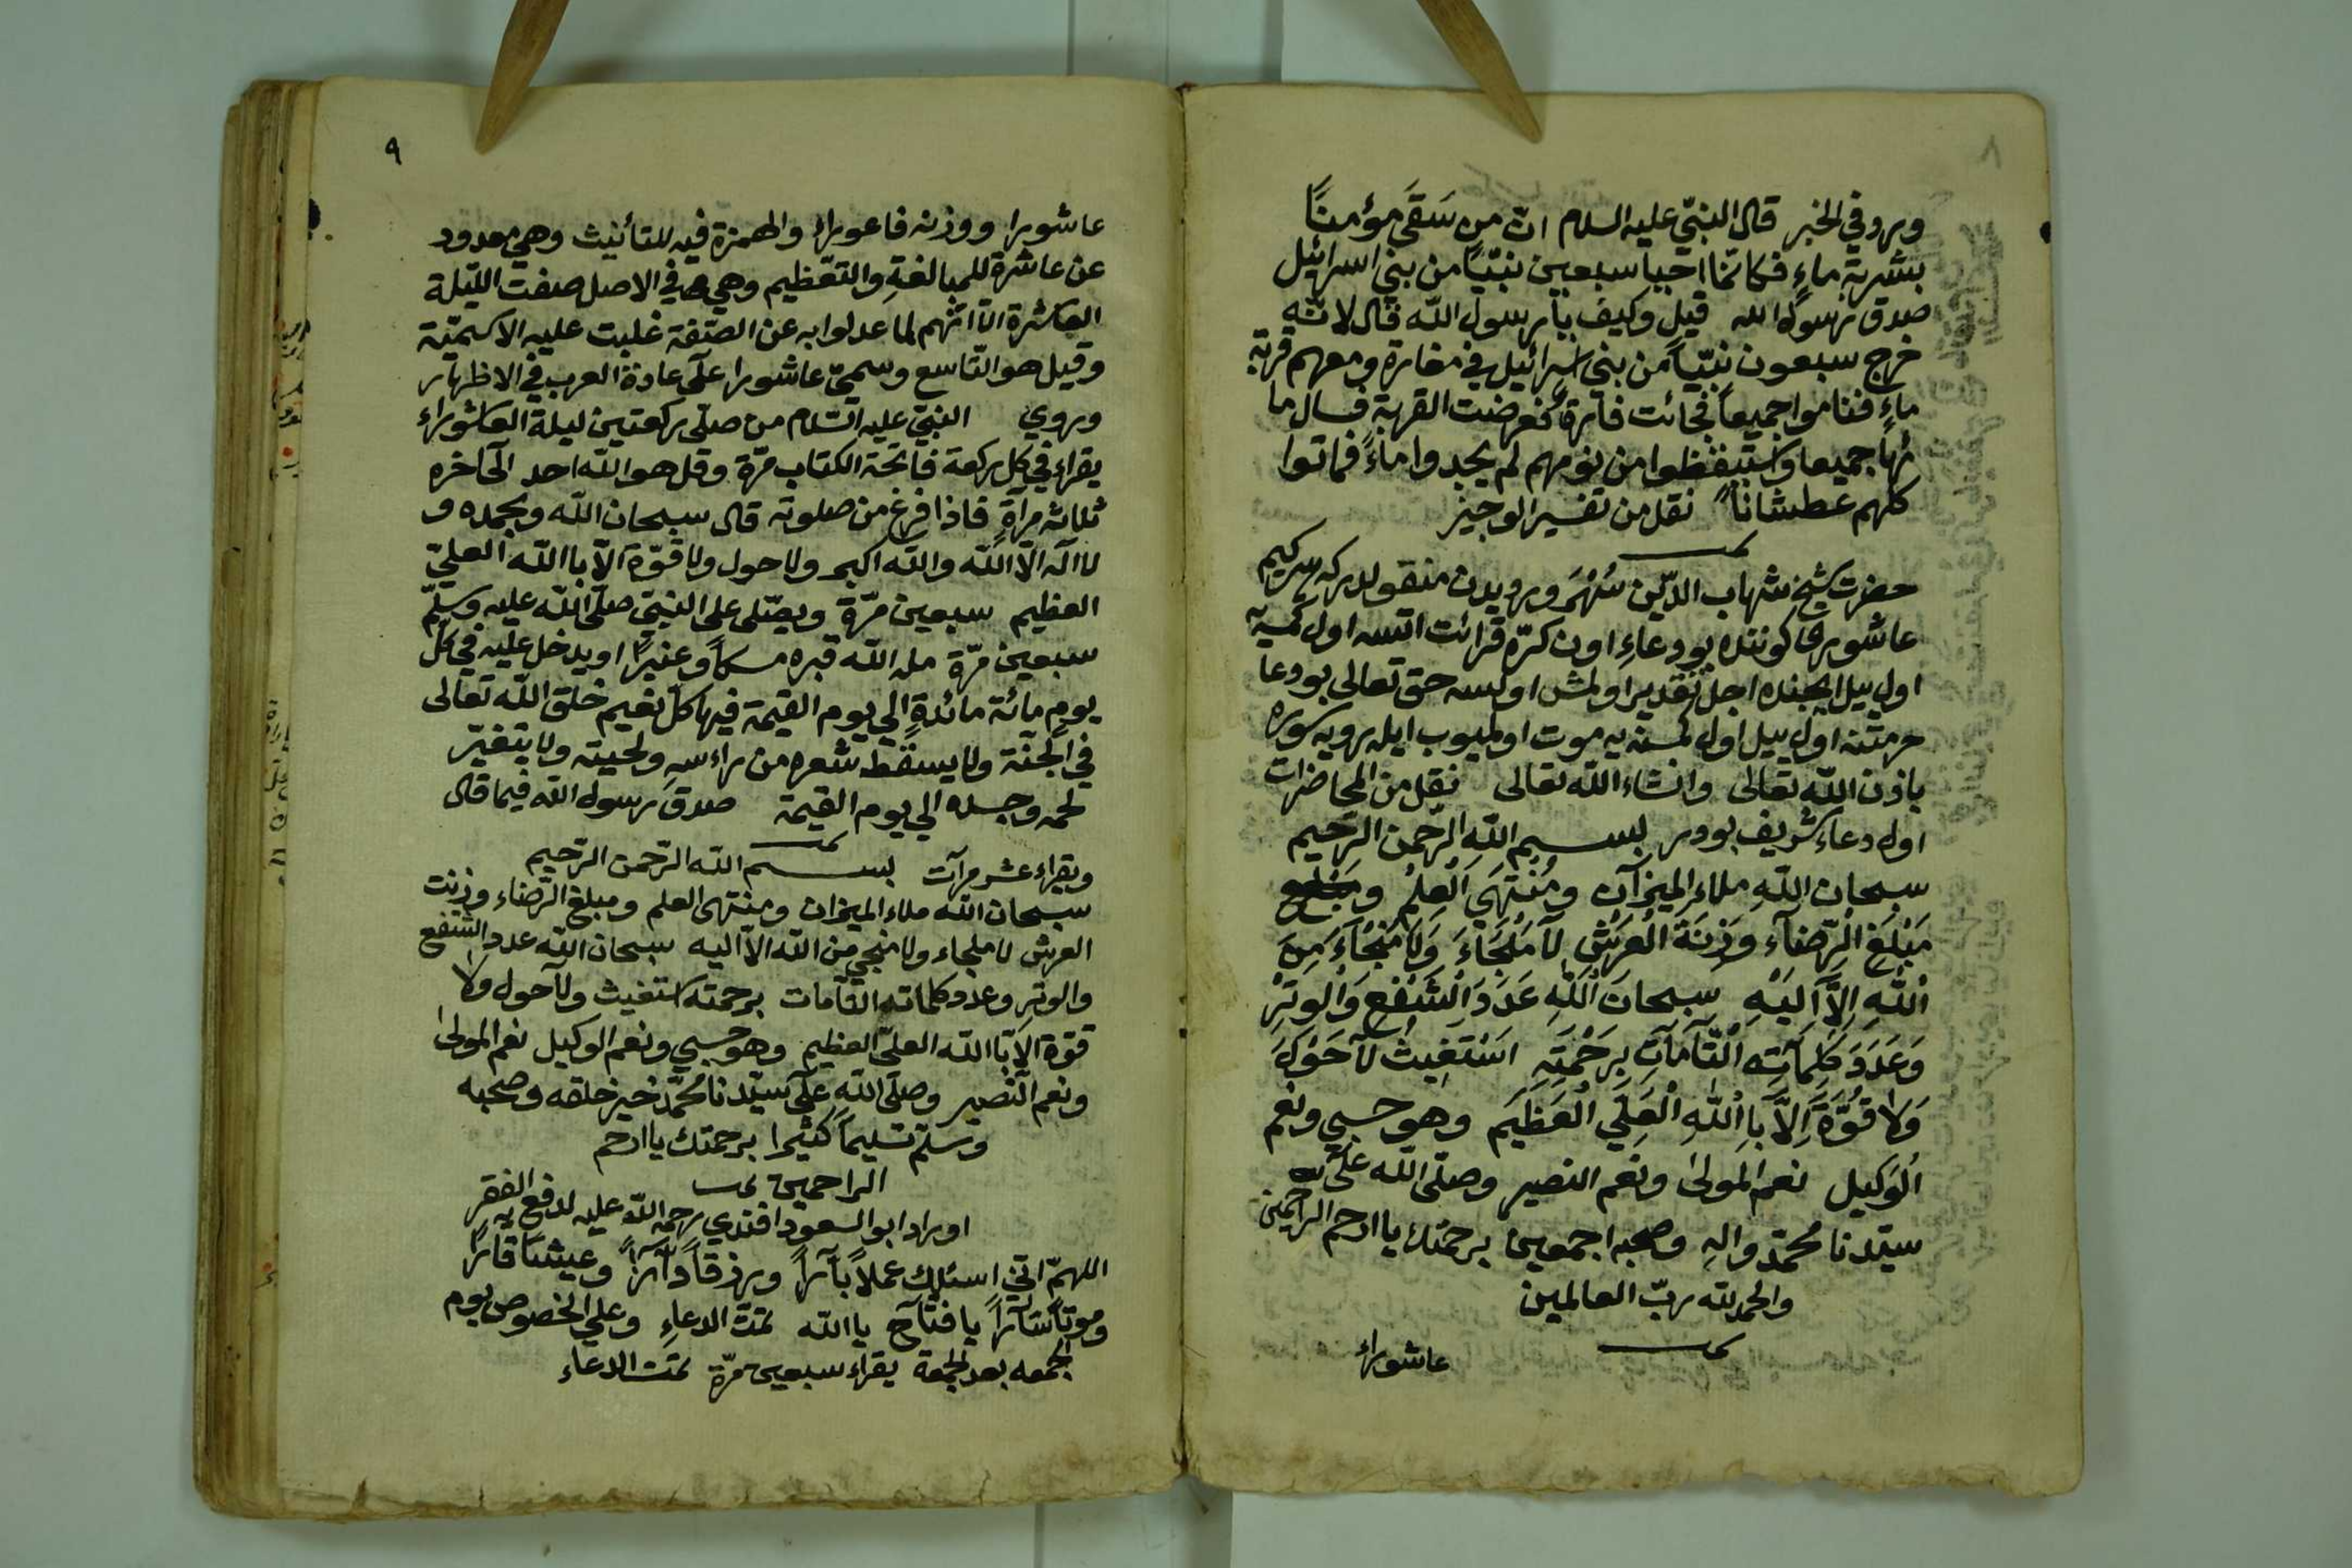 ٨
وروي في الخبر قال النبيّ عليه السلام انّ من سَقَى مؤمناً
بشربة ماءٍ فكانّما احيا سبعين نبيّاً من بني اسرائيل
صدق رسول الله قيل وكيف يا رسول الله قال لانّه
خرج سبعون نبيّاً من بني اسرائيل في مغارة ومعهم قربة
ماءٍ فناموا جميعاً فجائت فأرة فعرضت القربة فسال ما
ئها جميعا واستيقظوا من نومهم لم يجدوا ماءً فماتوا
كلهم عطشاناً نقل من تفسير الوجيز
حضرت شيخ شهاب الدّين سُهْرَوردیدن منقولدركه هر كيم
عاشورا كوننده بو دعاءِ اون كرّه قرائت اتسه اول كمسيه
اول ييل ايچنده اجل تقدير اولمش اولسه حق تعالى بو دعا
حرمتنه اول ييل اول كمسنه يه موت اولميوب
باذن الله تعالى وانشاء الله تعالى نقل من المحاضرات
اول دعاء شريف بودر بسم الله الرّحمن الرّحيم
سبحان اللهِ ملاء الميزآن ومُنْتَهَى الْعِلْمُ و
مَبْلَغِ الرِّضآء وَزِنَةَ الْعَرَشْ لآ مَلْجَاءَ وَلَا مَنْجَاءَ مِنَ
اللهِ اِلاَّ اليْهِ سبحانَ اللهِ عَدَدَ الْشَفْعِ وَالْوِتْرِ
وَعَدَدَ كَلِمَآتِه الْتَّآمآتِ بِرَحْمَتِهِ اسْتَغِيثُ لآ حَوْلَ
وَلا قُوَّةَ اِلَّا بِاللهِ الْعَلِي الْعَظِيمَ وهو حسبي ونعم
الْوَكيل نعم المَولىٰ ونعم النصير وصلّى الله على
سيّدنا محمّد والهِ وصحبه اجمعين برحمتك يا ارحم الراحمين
والحمد لله ربّ العالمين
عاشوراء
٩
عاشورا ووزنه فاعوراء والهمزة فيه للتأنيث وهي معدود
عن عاشرة للمبالغةِ والتعظيم وهي في الاصل صفت اللّيلة
العاشرة الاّ انّهم لما عدلوا به عن الصّفة غلبت عليه الاسميّة
وقيل هو التّاسع وسمّي عاشورا على عادة العرب في الاظهار
وروي النبيّ عليه السّلام من صلّى ركعتين ليلة العاشوراء
يقراء في كل ركعة فاتحة الكتاب مرّة وقل هو الله احد الى اخره
ثلاث مرآةٍ فاذا فرغ من صلوته قال سبحان الله وبحمده و
لا اله الاّ الله والله اكبر ولا حول ولا قوّة الاّ با الله العليّ
العظيم سبعين مرّة ويصّلى على النبيّ صلّى الله عليه وسلّم
سبعين مرّة ملء الله قبره مسكاً وعنبراً ويدخل عليه في كلّ
يومٍ مائة مائدةٍ الي يوم القيمة فيها كلّ نعيم خلق الله تعالى
في الجنّة ولا يسقط شعره من راءسهِ ولحيته ولا يتغيّر
لحمه وجسده الي يوم القيمة صدق رسول الله فيما قال
ويقراء عشر مرآت بسم الله الرّحمن الرّحيم
سبحان الله ملاء الميزان ومنتهى العلم ومبلغ الرّضاء وزنت
العرش لا ملجاء ولا منجي من الله الاّ اليه سبحان الله عدد الشفع
والوتر وعدد كلماته التّآمات برحمته استغيث ولآ حول ولا
قوّة الاّ با الله العليّ العظيم وهو حسبي ونعم الوكيل نعم المولىٰ
ونعم النّصير وصلّى الله على سيّدنا محمّد خير خلقه وصحبه
وسلّم تسليماً كثيرا برحمتك يا ارحم
الراحمين
اوراد ابو السعود افندي رحمه الله عليه لدفع الفقر
اللهمّ انّي اسئلك عملاً بآرّاً ورزقاً دآرّاً وعيشاً قآرّاً
وموتاً سآرّاً يا فتّاح يا الله تمّت الدعاءِ وعلي الخصوص يوم
الجمعه بعد الجمعة يقراء سبعين مرّة تمّت الدعاء